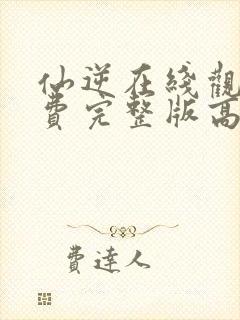 仙逆在綫觀
費完整版高
費達人